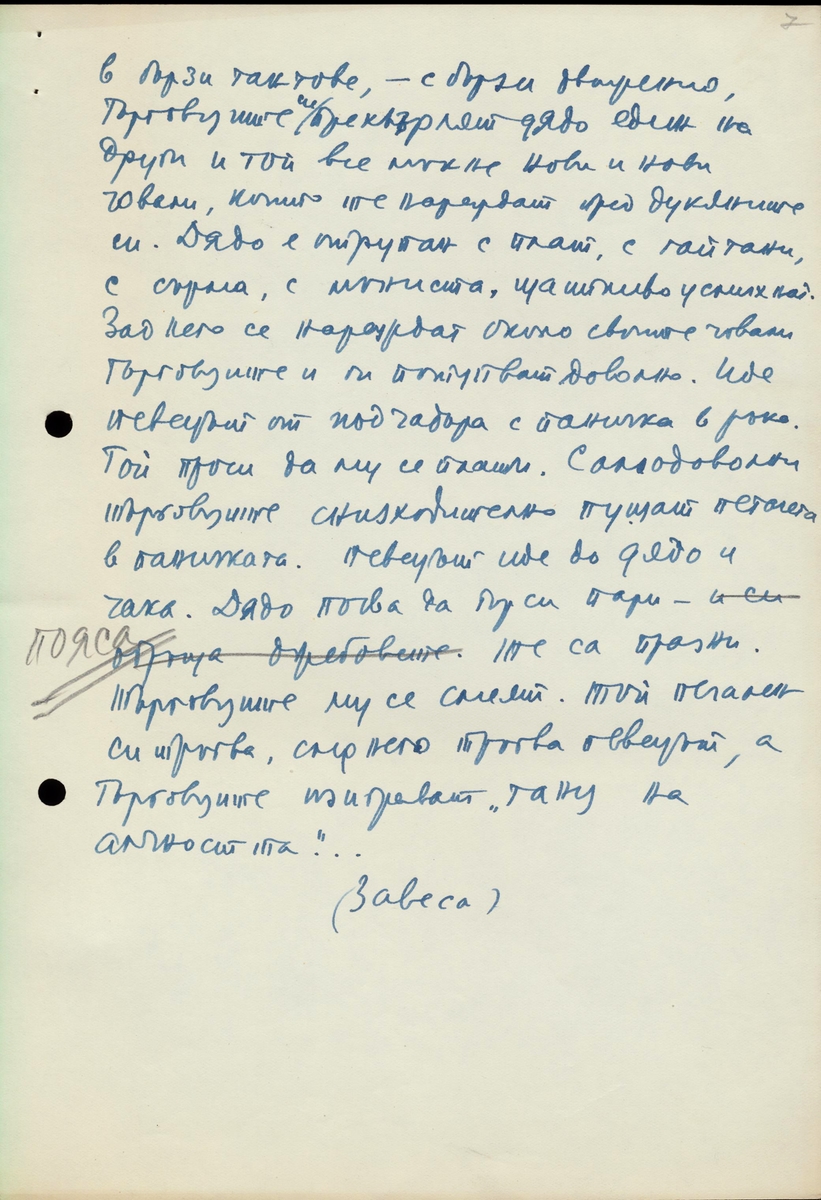 7
в бързи тактове, – с бързи движения,
Търговците си прехвърлят дядо един на
други и той все мъкне нови и нови
човали, които те нареждат пред дукяните
си. Дядо е отрупан с плат, с гайтани,
с сърма, с мъниста, щастливо усмихнат.
Зад него се нареждат около своите човали
Търговците и ги потупват доволно. Иде
певецът от под чадъра с паничка в ръка.
Той проси да му се плати. Самодоволни
търговците снизходително пущат петачета
в паничката. певецът иде до дядо и
чака. Дядо почва да търси пари – и си
пояса
обръща джебовете. те са празни.
Търговците му се смеят. той печален
си тръгва, след него тръгва певецът, а
Търговците изиграват „танц на
алчността"...
(Завеса)